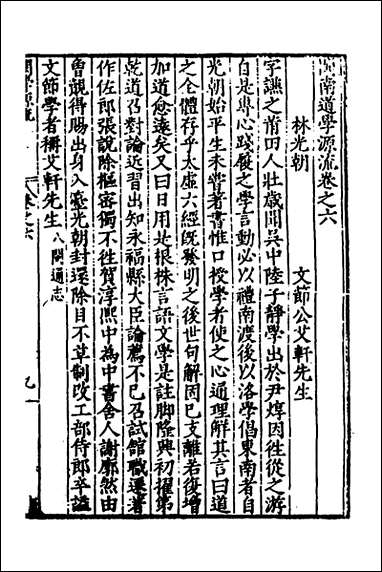 閩南道學源流卷之六
林光朝
文節公艾軒先生
字謙之莆田人壯歲聞吳中陸子靜學出於尹焞因徃從之游
自是專心踐履之學言動必以禮南渡後以洛學倡東南者自
光朝始平生未嘗著書惟口授學者使之心通理解其言曰道
之全體存乎太虛六經旣發明之後世句解因已支離若復增
加道愈遠矣又曰日用是根株言語文學是註脚隆興初擢第
乾道召對論近習出知永福縣大臣論薦不已召試館職遷著
作佐郎張說除樞密獨不徃賀淳熙中為中書舍人謝廓然由
曾覿得賜出身入臺光朝封還除目不草制改工部侍郎卒謚
文節學者稱艾軒先生
八閩通志
卷之六
九一